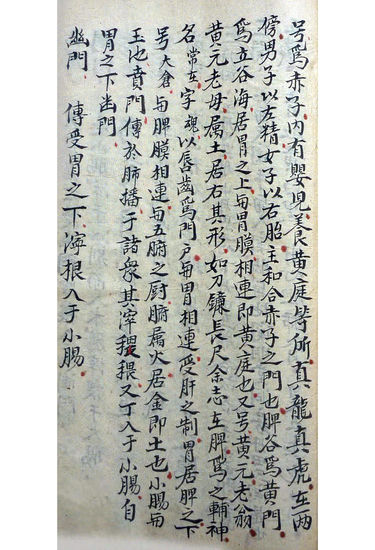 号為赤子内有嬰児養黄庭等所真龍真虎在两
傍男子以左精女子以右胎主和合赤子之門也脾谷為黄門
為立谷海居胃之上与胃膜相連即黄庭也又号黄元老翁
黄元老母属土居右其形如刀鐮長尺余志在脾為之輔神
名常在字魂以唇齒為門户与胃相連受肝之制胃居脾之下
号大倉与脾膜相連与五腑之厨腑属火居金即土也小腸与
玉池賁門傳於肺播于諸衆其滓穢猥又丁入于小腸自
胃之下幽門
幽門 傳受胃之下滓捤入于小腸